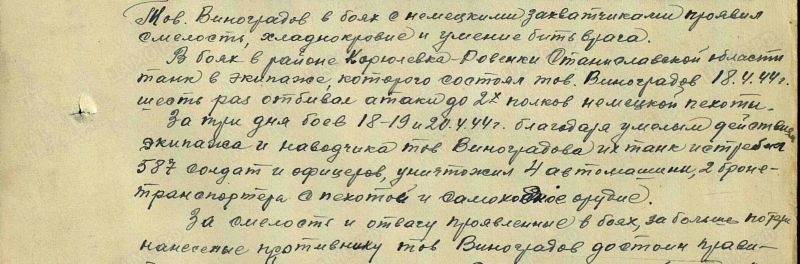 Тов. Виноградов в боях с немецкими захватчиками проявил
смелость, хладнокровие и умение бить врага.
В боях в районе Корюлевка-Ровенки Станиславской области
танк в экипаже, которого состоял тов. Виноградов 18.4.44г.
шесть раз отбивал атаки до 2х полков немецкой пехоты.
За три дня боев 18-19 и 20.4.44г. благодаря умелым действиям
экипажа и наводчика тов Виноградова их танк истребил
587 солдат и офицеров, уничтожил 4 автомашины, 2 броне-
транспортера с пехотой и самоходное орудие.
За смелость и отвагу проявленные в боях, за больше потери
нанесеные противнику тов Виноградов достоин прави-